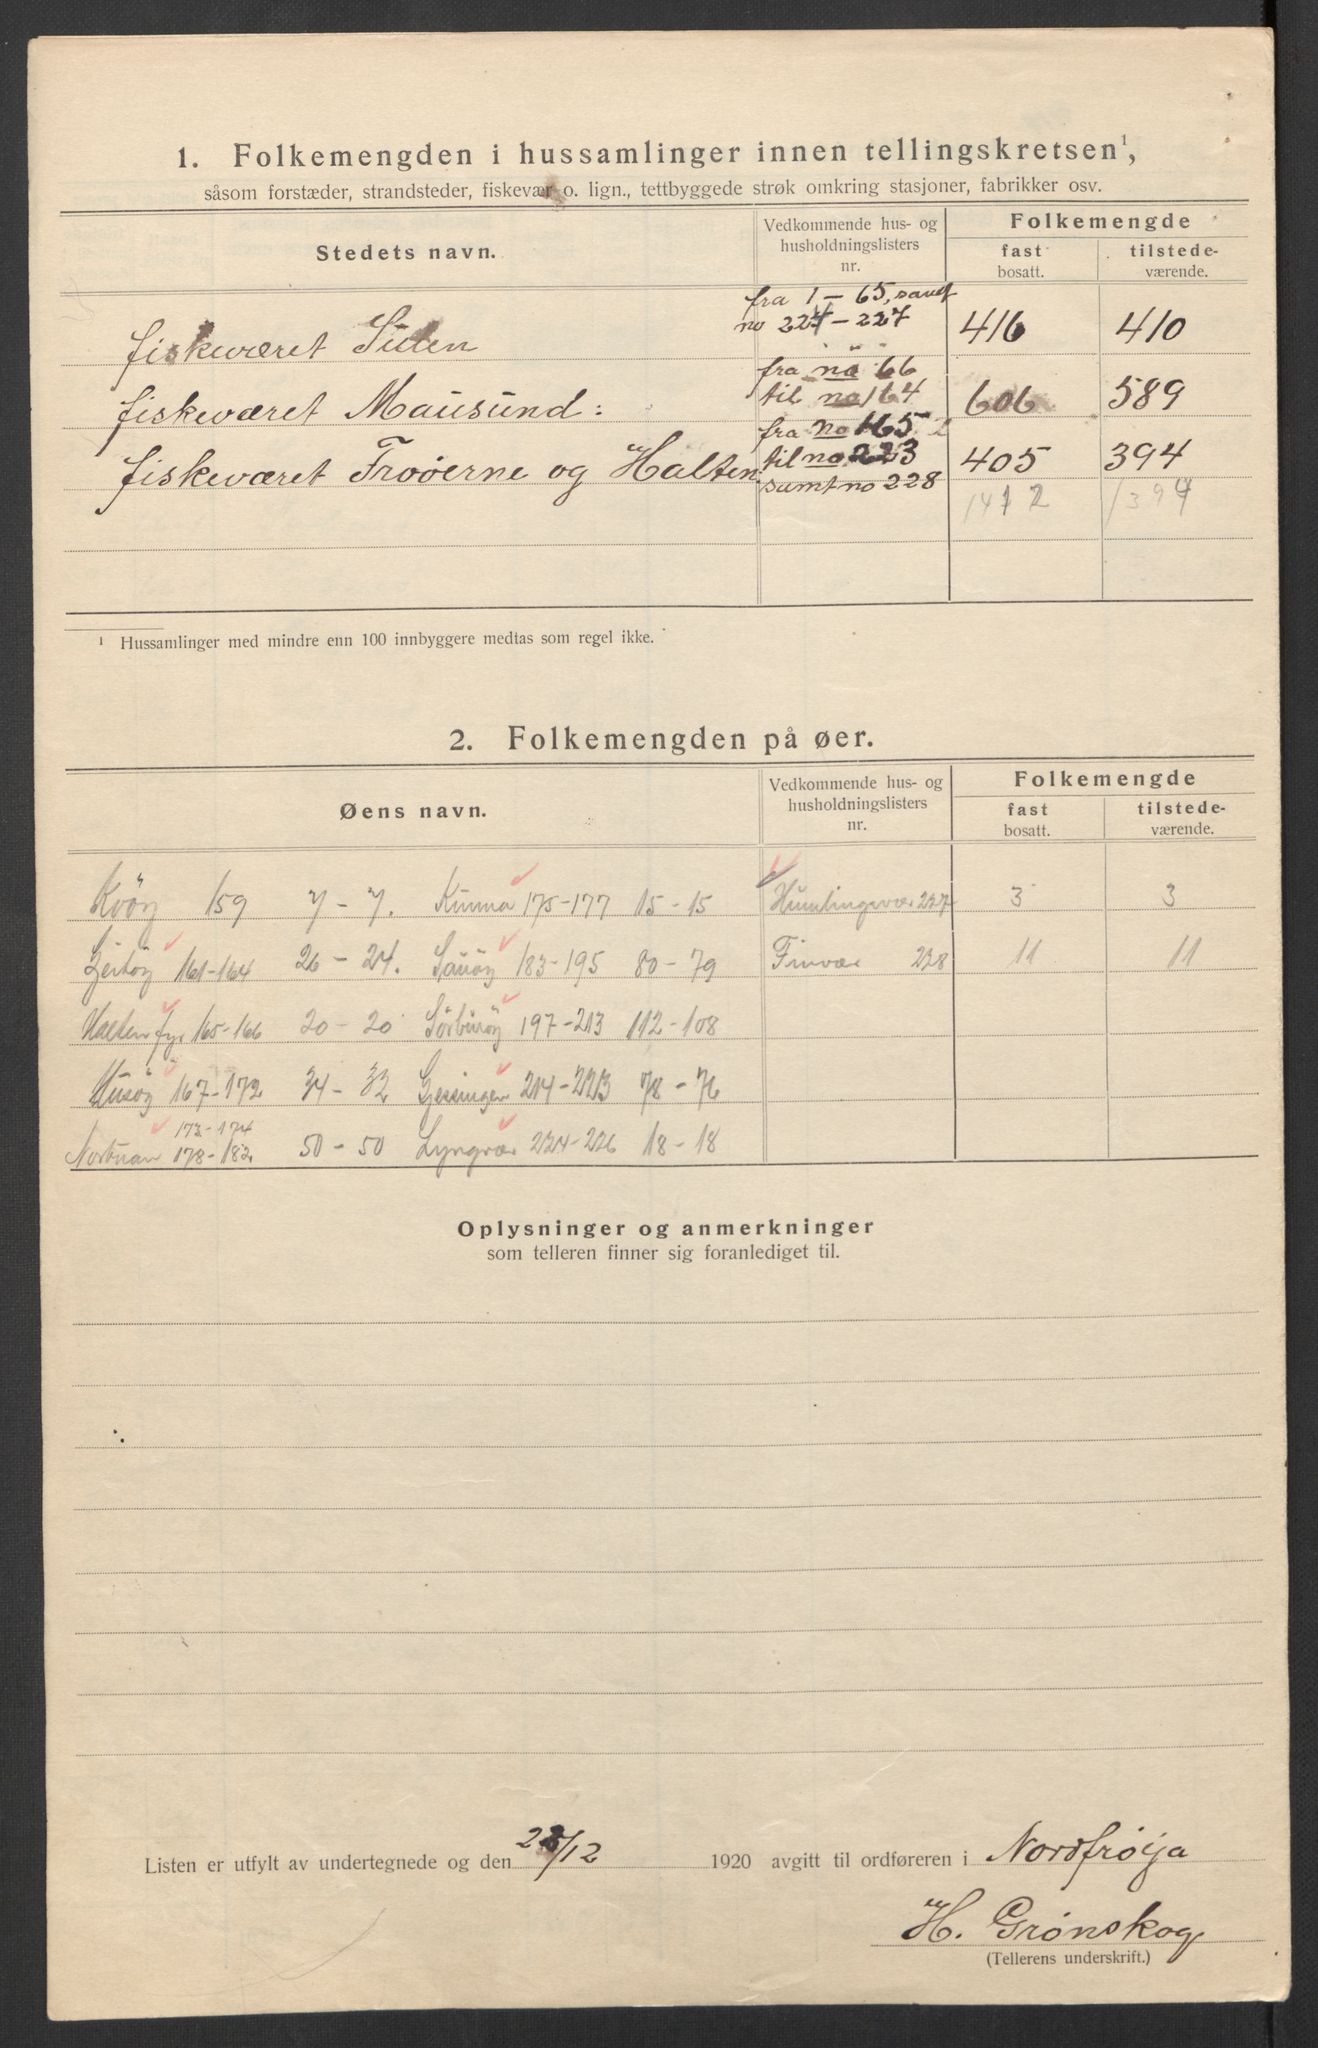 1. Folkemengden i hussamlinger innen tellingskretsen¹,
såsom forstæder, strandsteder, fiskevær o. lign., tettbyggede strøk omkring stasjoner, fabrikker osv.
Stedets navn.
Vedkommende hus- og husholdningslisters nr.
Folkemengde
fast bosatt.
tilstede-værende.
fra 1 - 65, samt
fiskeværet Sulen no 224 - 227 416 410
fra no 66
fiskeværet Mausund: til no 164 606 589
fra no 165
fiskeværet Froøerne og Halten til no 223 405 394
samt no 228
1397
¹ Hussamlinger med mindre enn 100 innbyggere medtas som regel ikke.
2. Folkemengden på øer.
Øens navn.
Vedkommende hus- og husholdningslisters nr.
Folkemengde
fast bosatt.
tilstede-værende.
159 7 - 7. Kunna 175-177 15 - 15 Humlingsvær 227 3 3
Geitöy 161-164 26 - 24. Sauöy 183-195 80 - 79 Finvær 228 11 11
Halten fyr 165-166 20 - 20 Sörburöy 197-213 112-108
Husöy 167-172 34 - 32 Gjessingen 214-223 78 - 76
173-174
Norbuan 178-182 50 - 50 Lyngvær 224-226 18 - 18
Oplysninger og anmerkninger
som telleren finner sig foranlediget til.
Listen er utfylt av undertegnede og den /12 1920 avgitt til ordføreren i Nordfrøya
H. Grønskag
(Tellerens underskrift.)